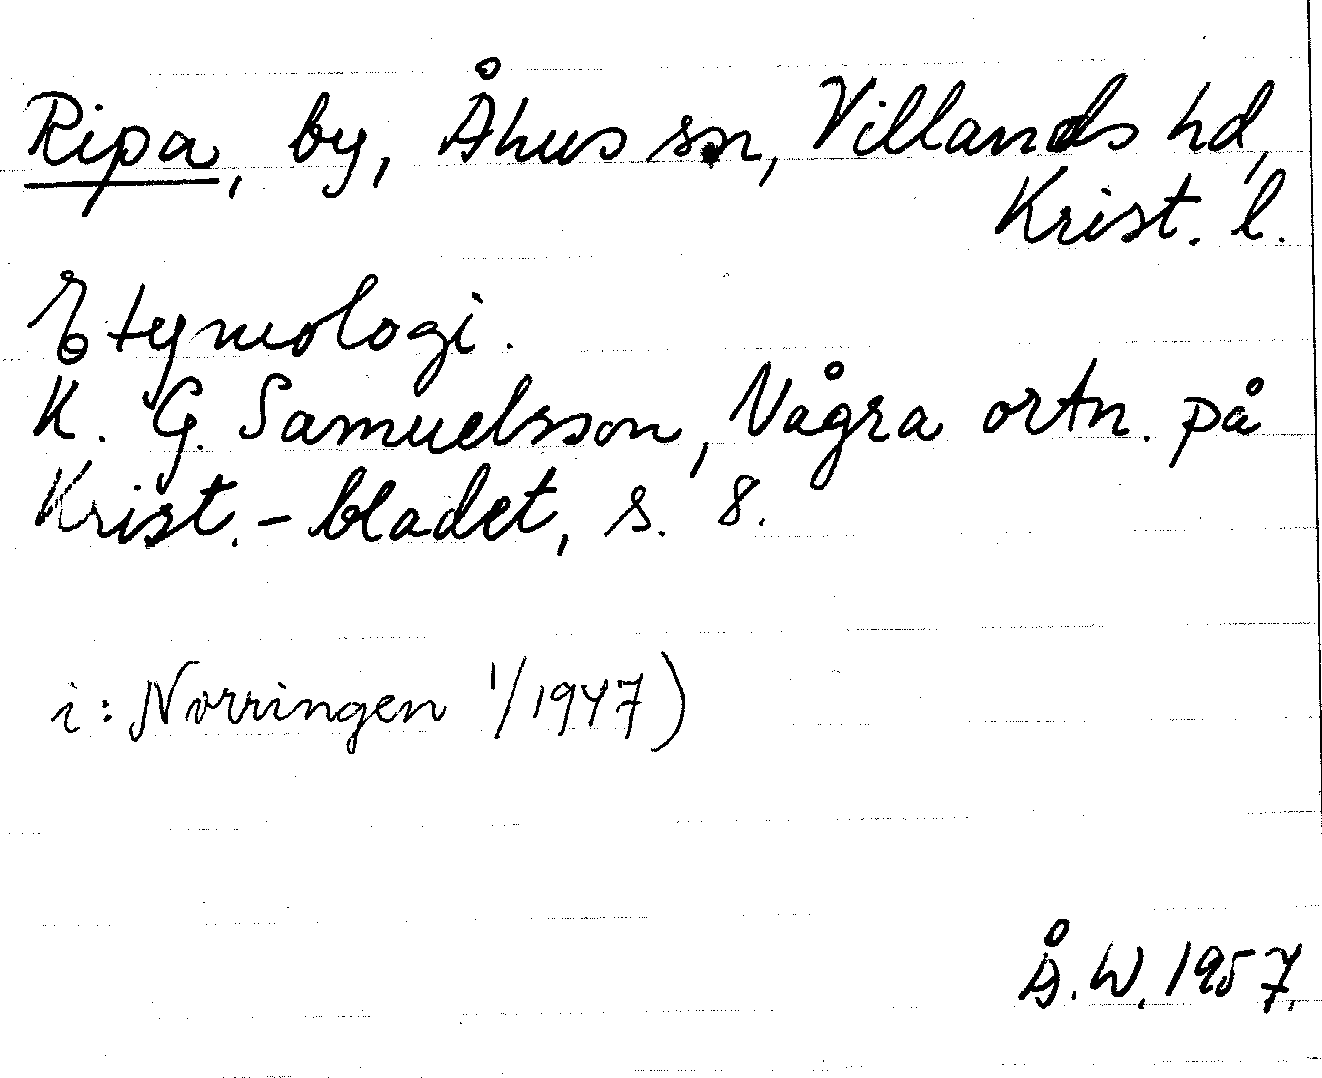 Ripa, by, Åhus sn, Villands hd,
Krist. l.
Etymologi.
K. G. Samuelsson, Några ortn. på
Krist.-bladet, s. 8.
i: Norringen 1/1947)
Å.W. 1957.